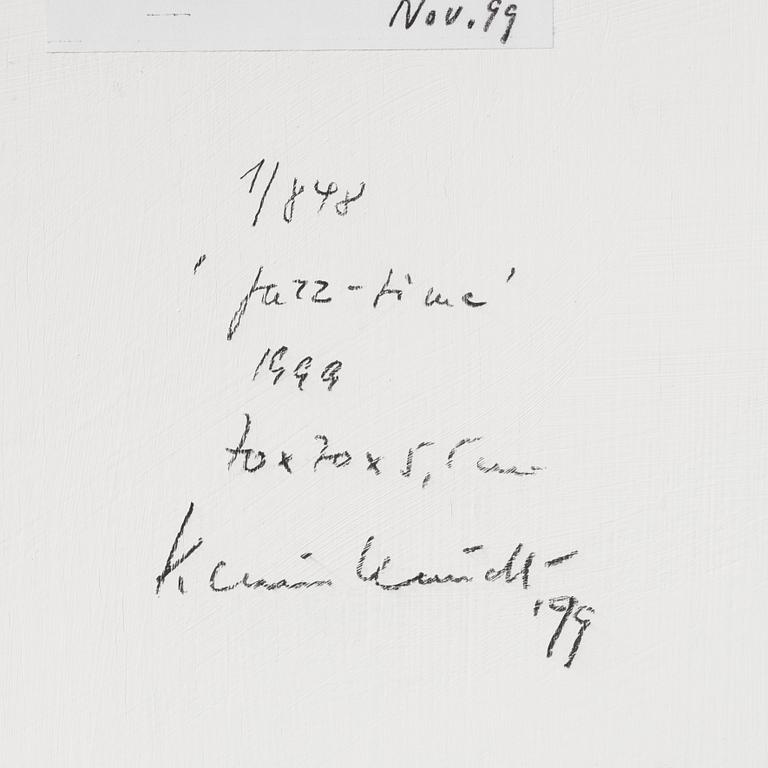 Nov. 99
1/848
'Jazz-time'
1999
70x70x5,5cm
'99